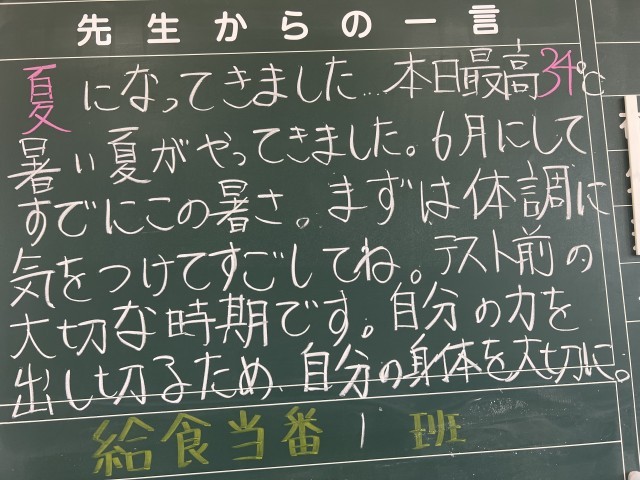 先生からの一言
夏になってきました…本日最高34℃
暑い夏がやってきました。6月にして
すでにこの暑さ。まずは体調に
気をつけてすごしてね。テスト前の
大切な時期です。自分の力を
出し切るため、自分の身体を大切に。
給食当番 1 班